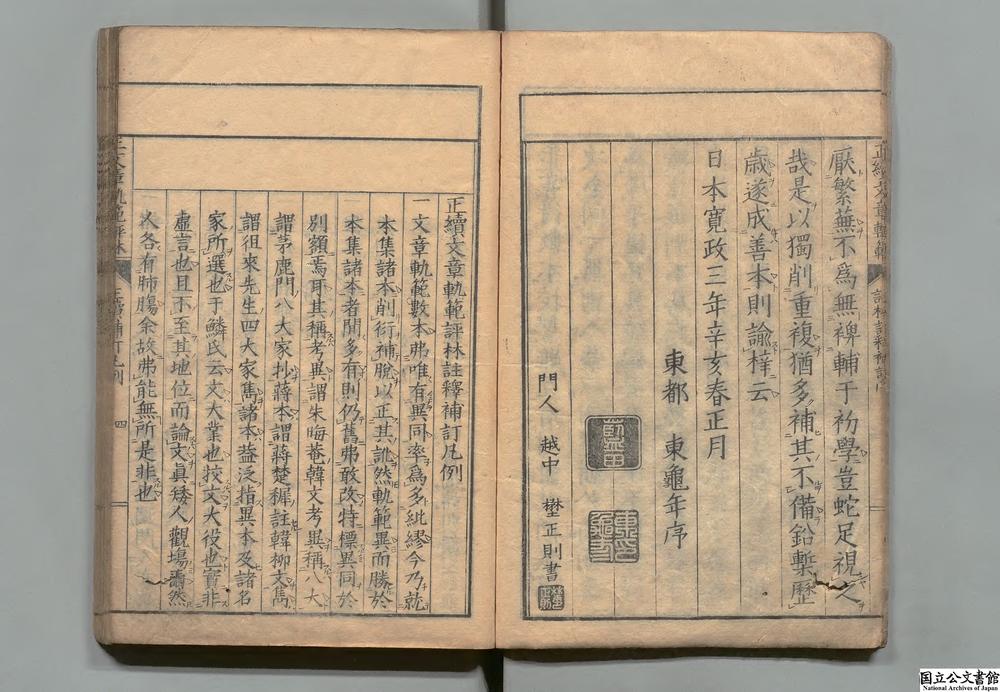 厭繁蕪不爲無裨輔于初學豈蛇足視之
哉是以獨削重複猶多補其不備鉛槧歷
歳遂成善本則諭梓云
日本寬政三年辛亥春正月
東都 東龜年序
門人 越中 埜正則書
正續文章軌範評林註釋補訂凡例
一文章軌範數本弗唯有異同率爲多紕繆今乃就
本集諸本削衍補脫以正其訛然軌範異而勝於
本集諸本者間多有則仍舊弗敢改特標異同於
別額焉耳其稱考異謂朱晦菴韓文考異稱八大
謂茅鹿門八大家抄蔣本謂蔣楚穉註韓柳文雋
謂徂來先生四大家雋諸本葢泛指異本及諸名
家所選也于鱗氏云文大業也挍文大役也實非
虛言也且不至其地位而論文眞矮人觀場耳然
人各有肺膓余故弗能無所是非也
四
国立公文書館
National Archives of Japan